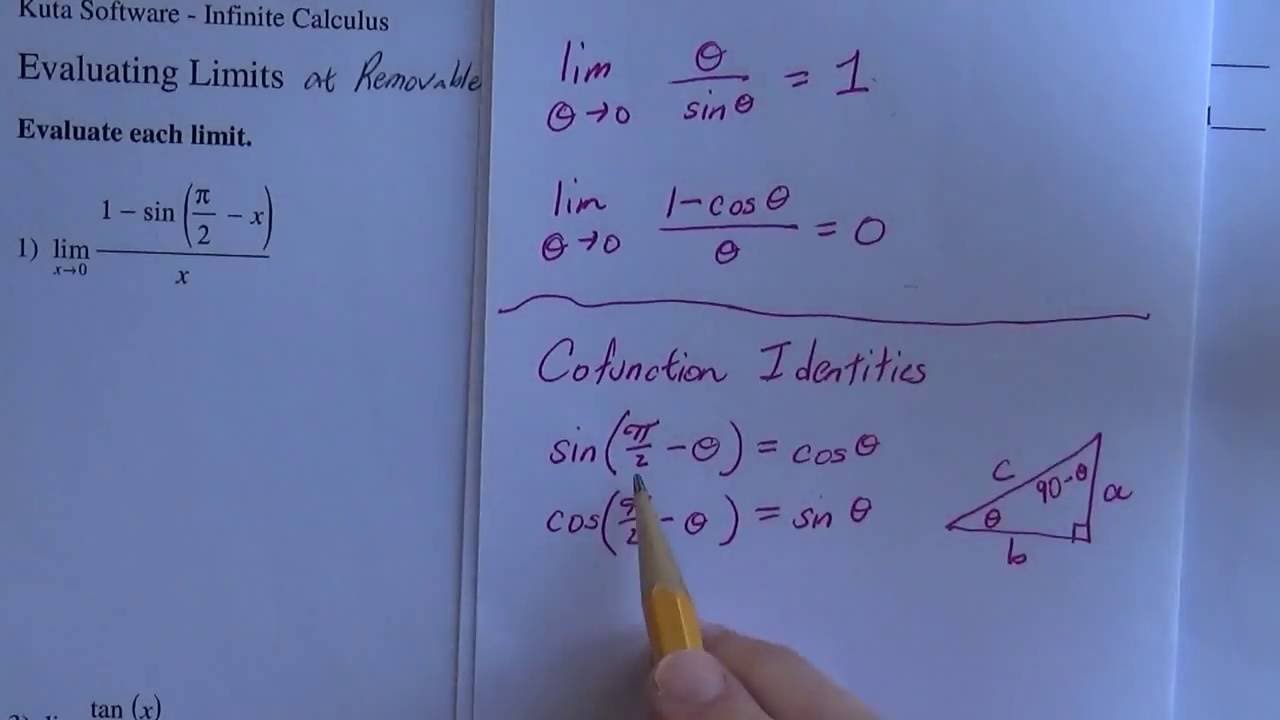 Kuta Software - Infinite Calculus
Evaluating Limits at Removable
Evaluate each limit.
1) lim x→0 (1 − sin (π/2 − x)) / x
tan (x)
lim θ→0 θ / sin θ = 1
lim θ→0 (1 - cos θ) / θ = 0
Cofunction Identities
sin(π/2 - θ) = cos θ
cos(π/2 - θ) = sin θ
c
90-θ
a
θ
b